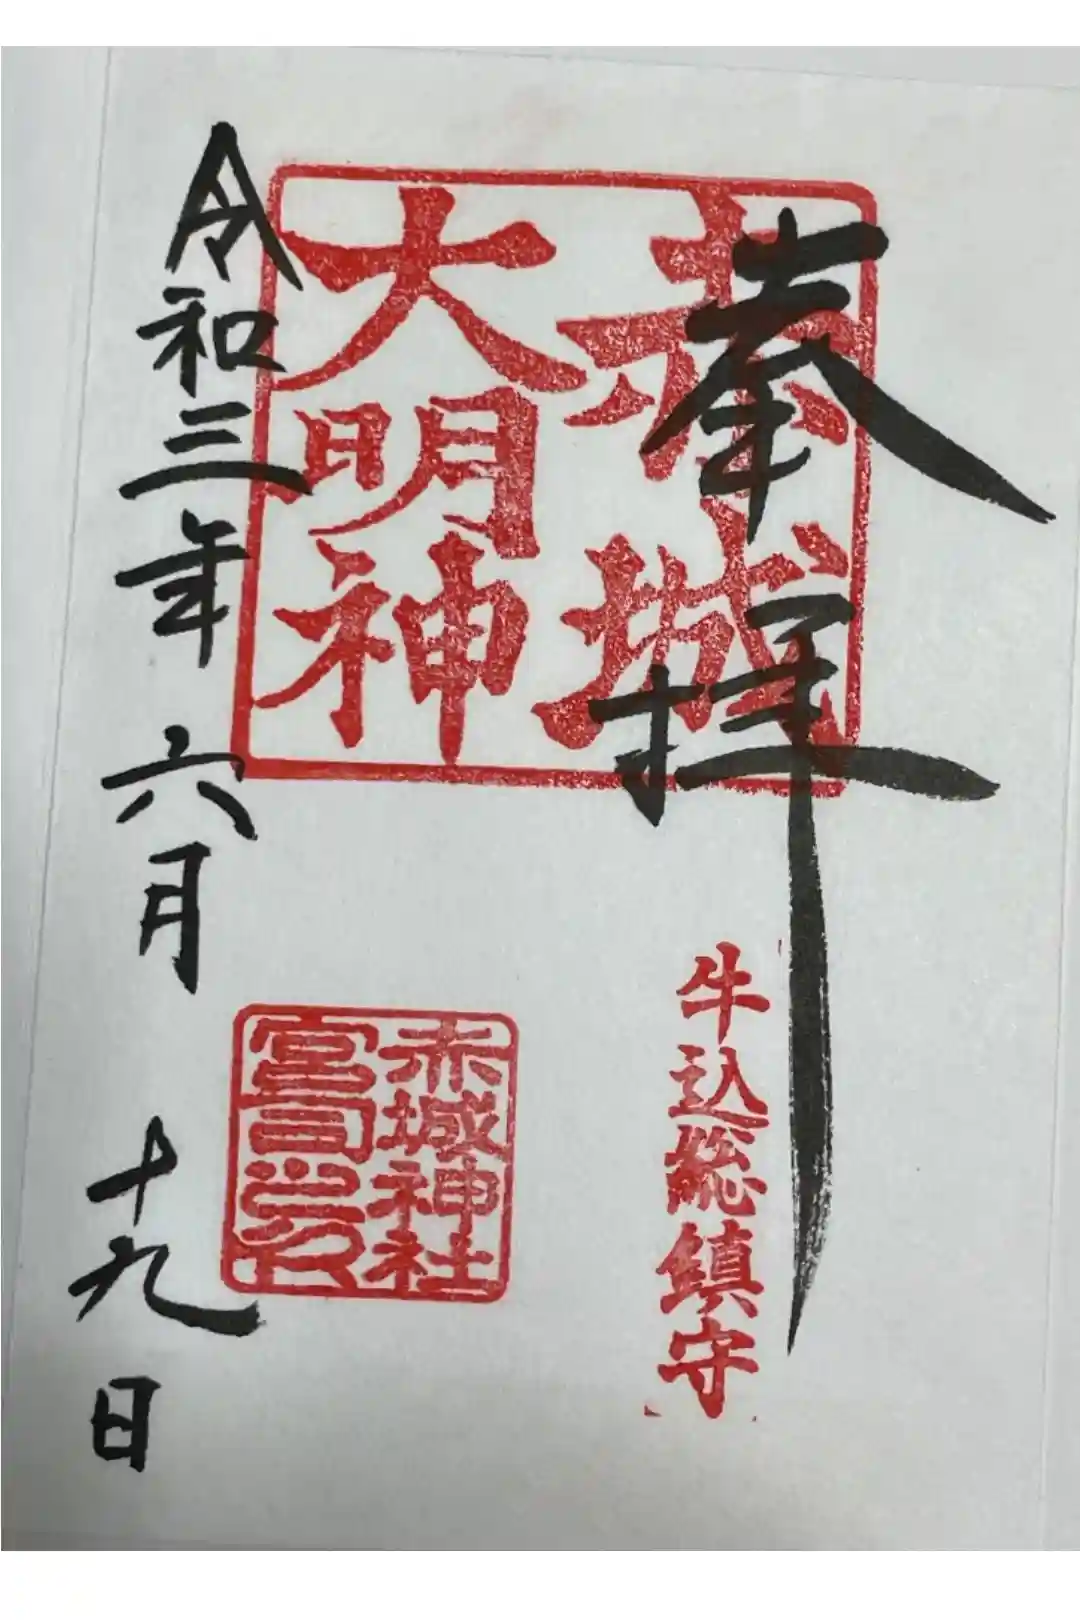 奉拝
牛込総鎮守
赤城
大明神
赤城神社
宮司之印
令和三年六月十九日